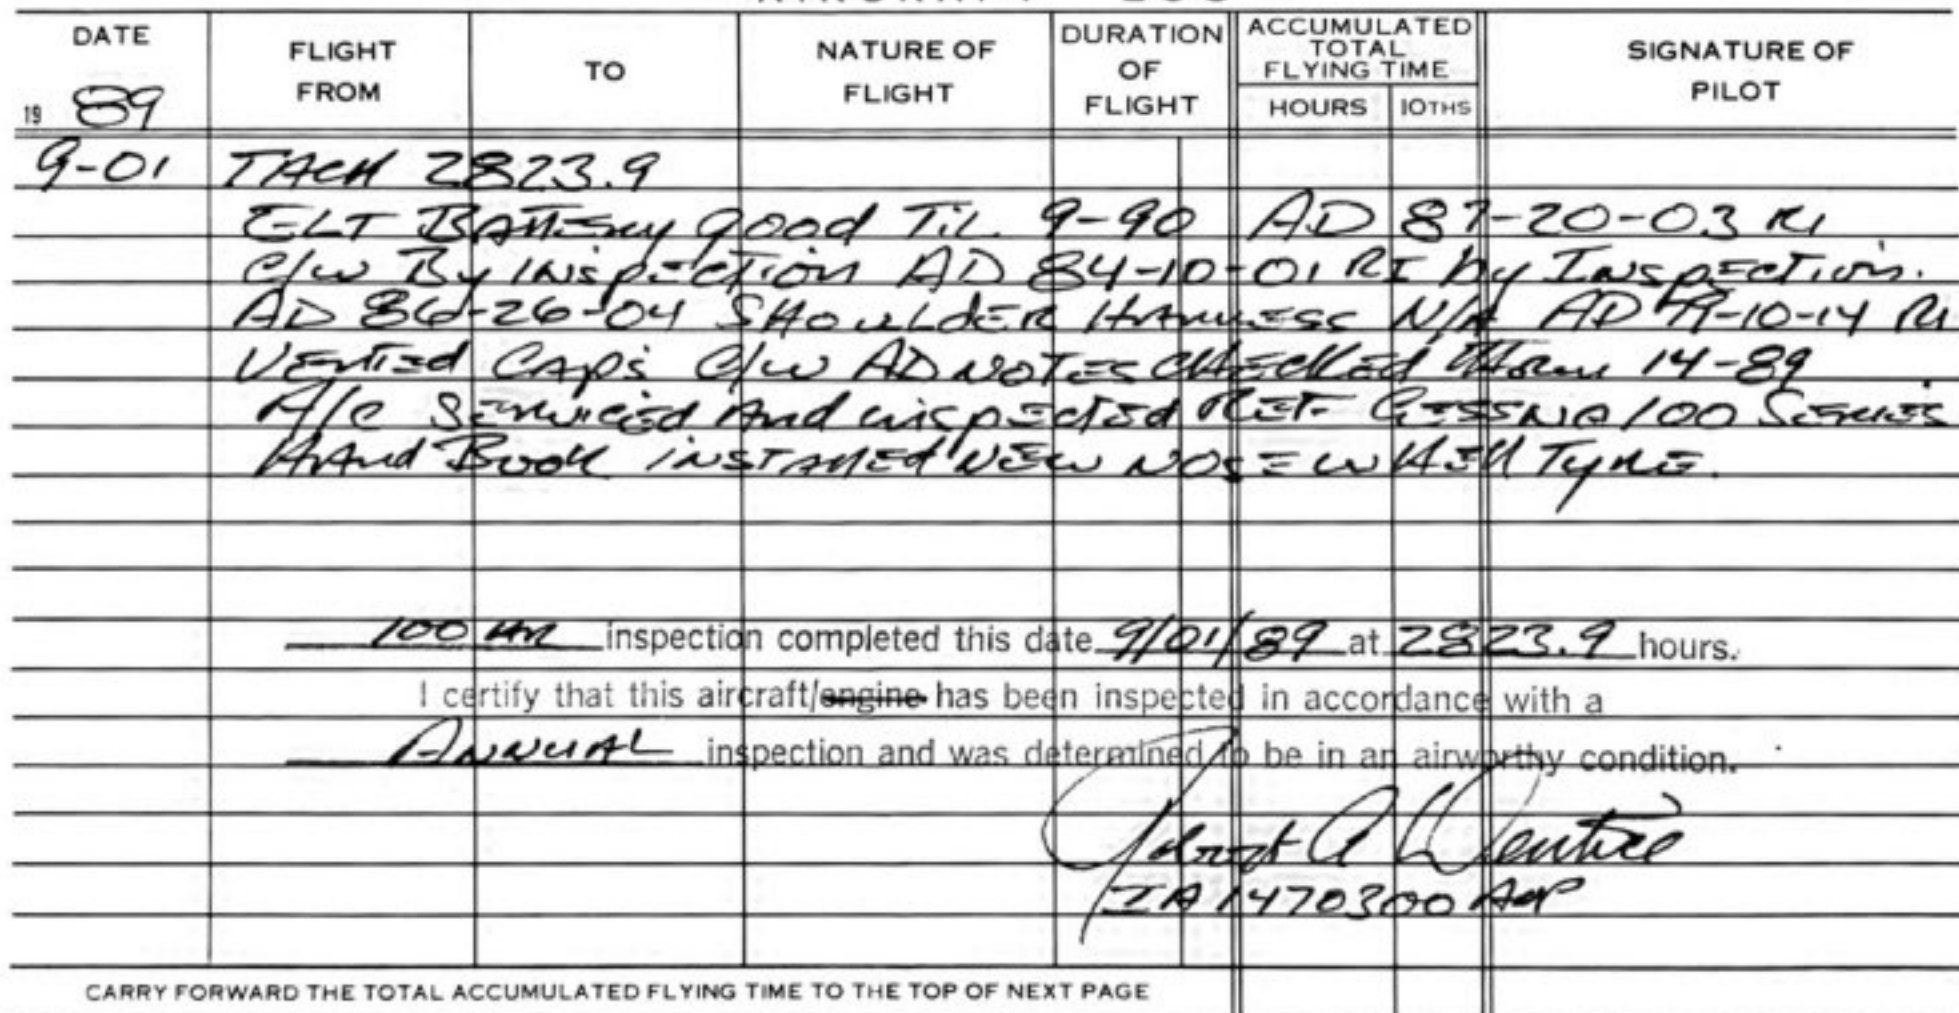 DATE
FLIGHT FROM
TO
NATURE OF FLIGHT
DURATION OF FLIGHT
ACCUMULATED TOTAL FLYING TIME
HOURS
10THS
SIGNATURE OF PILOT
19 89
9-01 TACH 2823.9
ELT Battery good Til. 9-90 AD 87-20-03 RI
C/W By Inspection AD 84-10-01 RI by Inspection.
AD 86-26-04 SHOULDER HARNESS N/A AD 79-10-14 RI
Vented Caps C/W AD NOTES CHECKED THRU 14-89
A/C Serviced And inspected REF. CESSNA 100 SERIES
HAnd Book INSTALLED NEW NOSE WHEEL TYRE.
100 HR inspection completed this date 9/01/89 at 2823.9 hours.
I certify that this aircraft/engine has been inspected in accordance with a
ANNUAL inspection and was determined to be in an airworthy condition.
Robert A
IA 1470300 A&P
CARRY FORWARD THE TOTAL ACCUMULATED FLYING TIME TO THE TOP OF NEXT PAGE